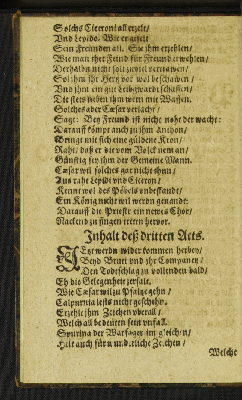 Solchs Ciceroni all erzelt/
Vnd Lepido. Wie er gfelt
Sein Freunden all. Sie jhm erzehlen/
Wie man thet Feind für Freund erwehlen/
Derhalbn nicht solt zuviel vertrawen/
Sol jhm jhr Hertz vor wol beschawen/
Vnd jhm ein gut Leibguardi schaffen/
Die stets neben jhm wern mit Waffen.
Solches aber Cæsar verlacht/
Sagt: Bey Freund ist nicht noht der wacht:
Darauff kömpt auch zu jhm Anthon/
Bringt mit sich eine güldene Kron/
Raht/ daß er die vom Volck nem an/
Günstig sey jhm der Gemeine Mann.
Cæsar wil solches gar nicht thun/
Aus raht Lepidi vnd Ciceron/
Kennt wol des Pöbels vnbestandt/
Ein König nicht wil werdn genandt:
Darauff die Priester ein newes Chor/
Nackend zu singen tritten hervor.
Inhalt deß dritten Acts.
JEtzt werdn wider kommen herbey/
Beyd Bruti vnd jhr Companey/
Den Todschlag zu vollenden bald/
Eh die Gelegenheit zerfalt.
Wie Cæsar wil zu Pfaltz gehn/
Calpurnia lests nicht geschehn.
Erzehlt jhm Zeichen vberall/
Welch all bedeuten sein vnfall.
Spurina der Warsager im gleichn/
Helt auch für wunderliche Zeichen/
Welche